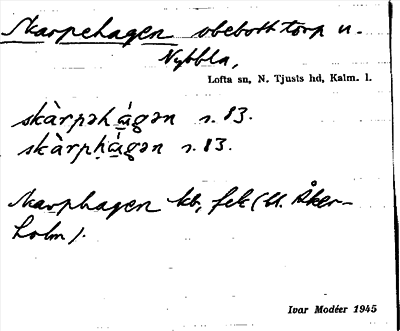 Skarpehagen obebott torp u.
Nybbla,
Lofta sn, N. Tjusts hd, Kalm. l.
skàrpəhá̱gən s. 83.
skàrpḥá̱gən s. 83.
Skarphagen kb, fek (bl. Åker-
holm).
Ivar Modéer 1945